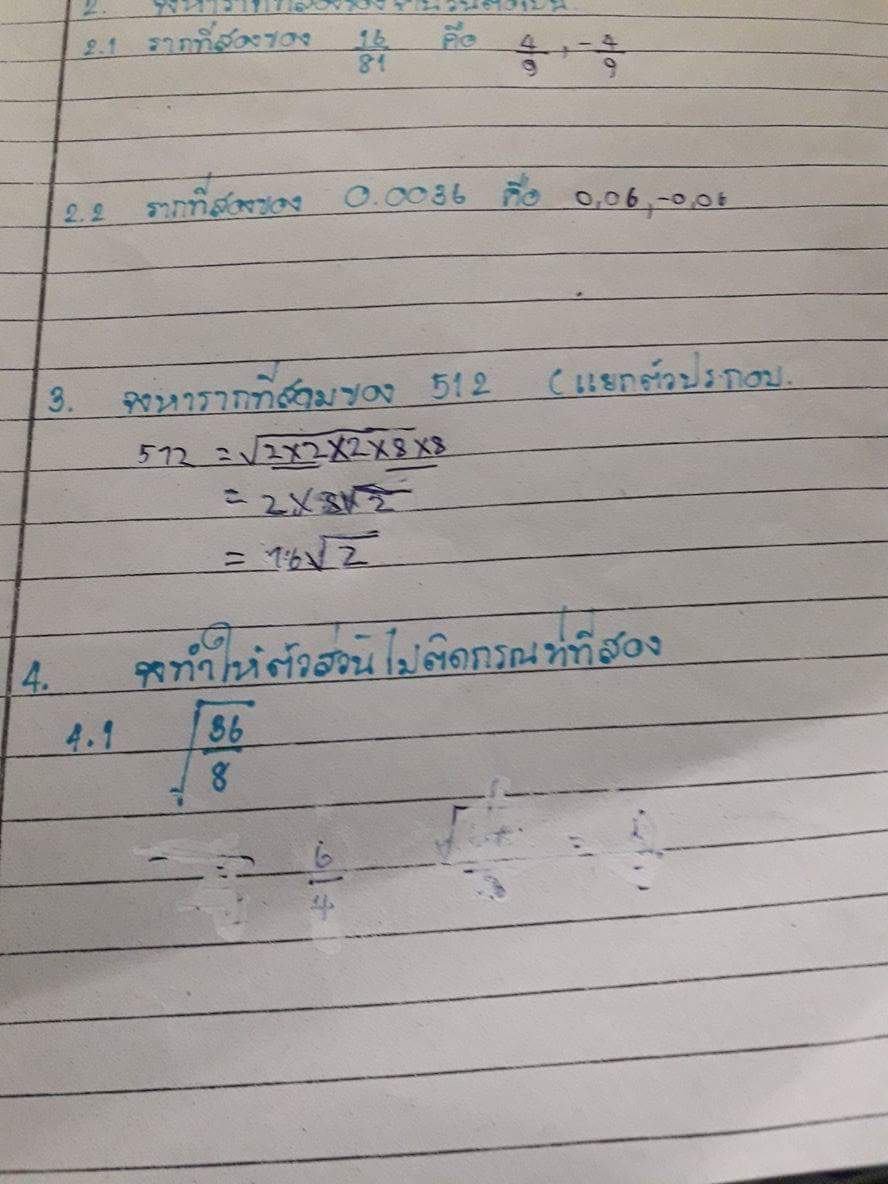 2.
2.1 รากที่สองของ 16/81 คือ 4/9 , -4/9
2.2 รากที่สองของ 0.0036 คือ 0,06,-0,06
3. จงหารากที่สามของ 512 (แยกตัวประกอบ.
512 = √2×2×2×8×8
= 2×8√2
= 16√2
4. จงทำให้ตัวส่วนไม่ติดกรณฑ์ที่สอง
4.1 √36/8
= 6/4